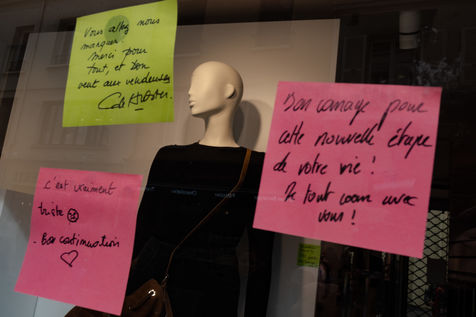 Vous allez nous
manquer.
merci pour
tout, et bon
vent aux vendeuses
Bon courage pour
cette nouvelle étape
de votre vie !
De tout cœur avec
vous !
C'est vraiment
triste ☹
. Bon continuation
♡